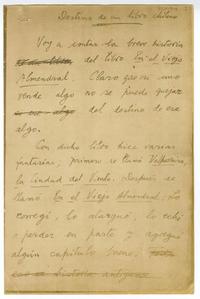 Destino de un libro chileno
Voy a contar la breve historia
del libro En el Viejo
Almendral. Claro que si uno
vende algo no se puede quejar
del destino de ese
algo.
Con dicho libro hice varias
fantasías; primero se llamó Valparaíso,
la Ciudad del Viento. Después se
llamó En el Viejo Almendral; lo
corregí, lo alargué, lo eché
a perder en parte y agregué
algún capítulo bueno.